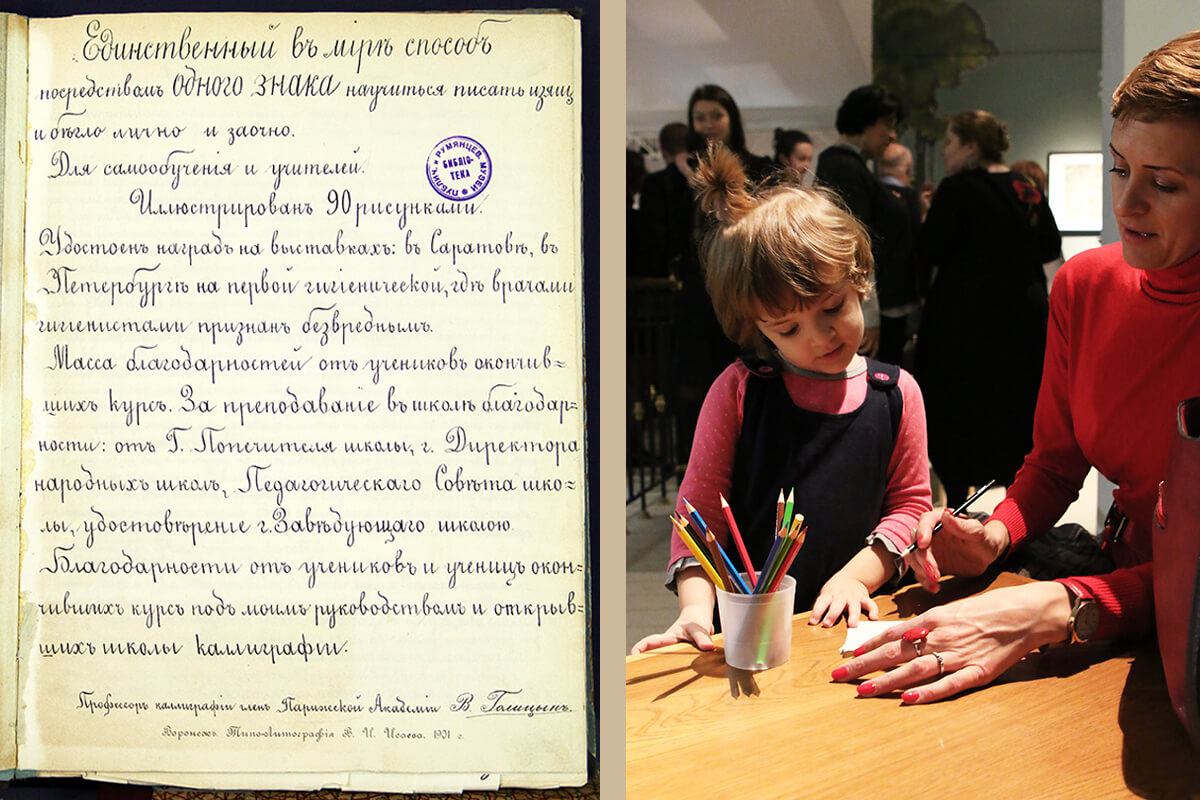 Единственный въ мірѣ способъ
посредствомъ ОДНОГО ЗНАКА научиться писать изящ
и бѣгло лично и заочно.
Для самообученія и учителей.
РУМЯНЦЕВ. МУЗЕЙ ПУБЛИЧ.
БИБЛІО-
ТЕКА
Иллюстрированъ 90 рисунками.
Удостоенъ наградъ на выставкахъ: въ Саратовѣ, въ
Петербургѣ на первой гигіенической, гдѣ врачами
гигіенистами признанъ безвреднымъ.
Масса благодарностей отъ учениковъ окончив=
шихъ курсъ. За преподаваніе въ школѣ благодар=
ности: отъ Г. Попечителя школы, г. Директора
народныхъ школъ, Педагогическаго Совѣта шко=
лы, удостовѣреніе г. Завѣдующаго школою.
Благодарности отъ учениковъ и ученицъ окон=
чившихъ курсъ подъ моимъ руководствомъ и открыв=
шихъ школы каллиграфіи.
Профессоръ каллиграфіи членъ Парижской Академіи В. Голицынъ.
Воронежъ. Типо-Литографія В. И. Исаева. 1901 г.